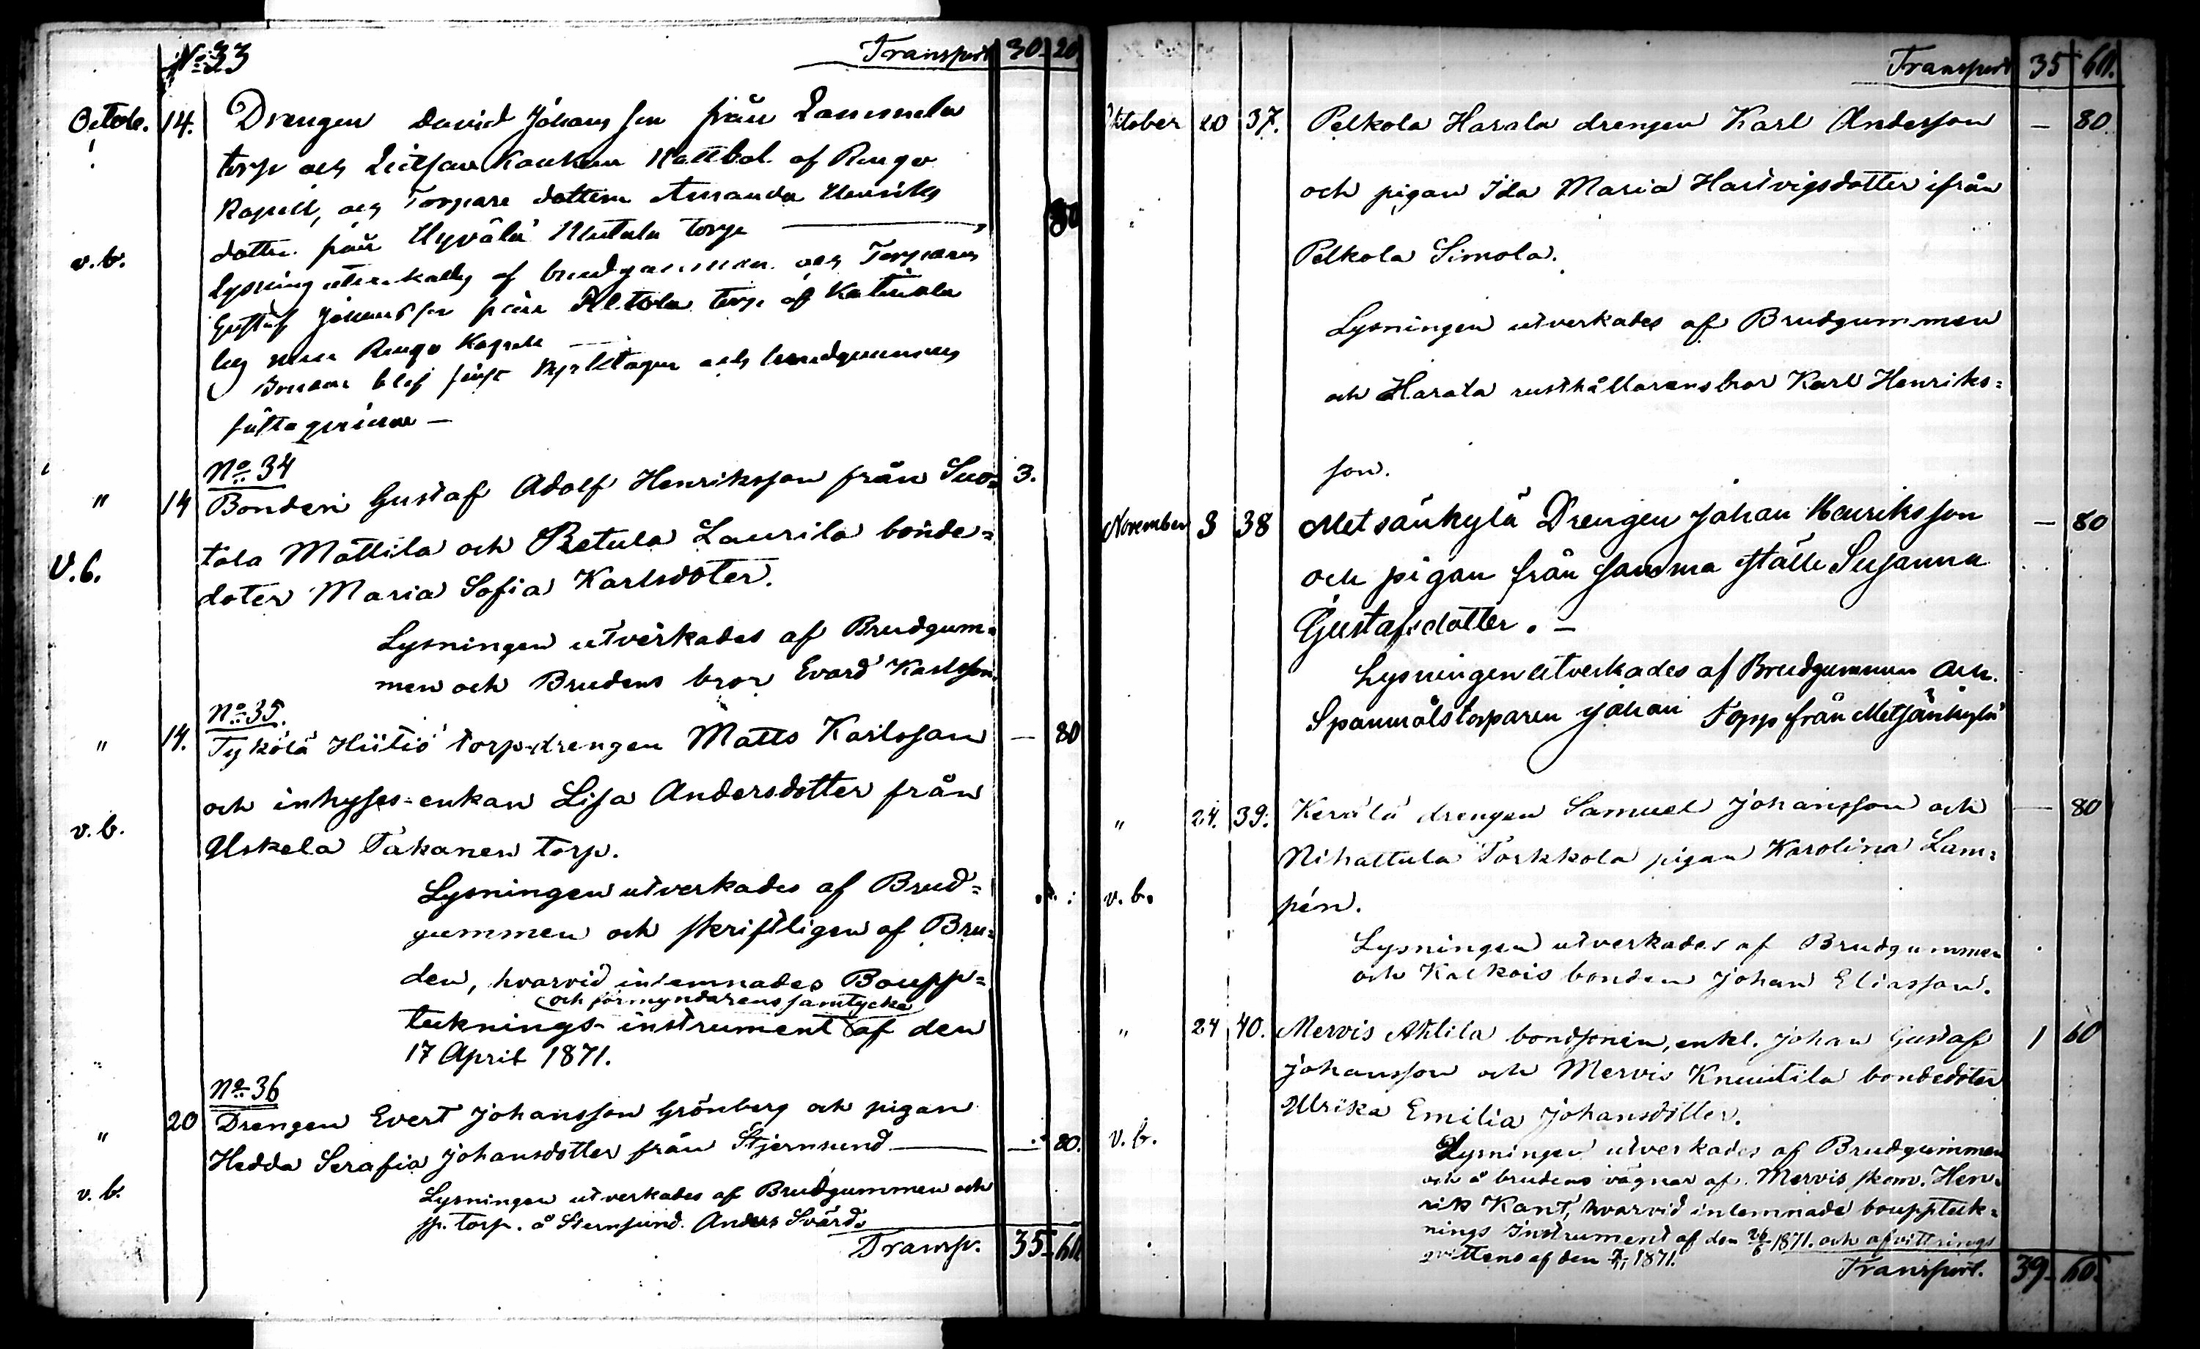 No 33 Transport 30 20
Octob. 14. Drengen David Johansson från
torp och af Rengo
Kapell, och Torpare dottern Amanda Henriks
dotter från torp — 80
v. b.
Lysning utverkades af brudgummen och Torparen
Gustaf Johansson från torp af
by Rengo Kapell —
blef och brudgummens
—
No 34
" 14 Bonden Gustaf Adolf Henriksson från Suo= 3.
tala Mattila och Retula Laurila bonde=
V. b. doter Maria Sofia Karlsdoter.
Lysningen utverkades af Brudgum=
men och Brudens bror Evard Karlsson.
No 35.
" 14. Tykölä Hiitiö torp-drengen Matts Karlsson — 80
och inhyses-enkan Lisa Andersdotter från
v. b. Uskela Takanen torp.
Lysningen utverkades af Brud=
gummen och skriftligen af Bru=
den, hvarvid inlemnades Boupp=
och förmyndarens samtycke
tecknings-instrument af den
17 April 1871.
No 36
" 20 Drengen Evert Johansson Grönberg och pigan
Hedda Serafia Johansdotter från Stjernsund — — 80.
v. b. Lysningen utverkades af Brudgummen och
sp. torp. å Sternsund. Anders Svärd.
Transp. 35 60
Transport 35 60.
Oktober 20 37. Pelkola Harala drengen Karl Andersson — 80
och pigan Ida Maria Hartvigsdotter ifrån
Pelkola Simola.
Lysningen utverkades af Brudgummen
och Harala rusthållarens bror Karl Henriks=
son.
November 3 38 Metsänkylä Drengen Johan Henriksson — 80
och pigan från samma ställe Susanna
Gustafsdotter. —
Lysningen utverkades af Brudgummen och
Spanmålstorparen Johan Topp från Metsänkylä
" 24. 39. Kerälä drengen Samuel Johansson och — 80
Nihattula Torkkola pigan Karolina Lam=
v. b. pén.
Lysningen utverkades af Brudgummen
och Kalkois bonden Johan Eliasson.
" 24 40. Mervis Ahlila bondsonen, enkl. Johan Gustaf 1 60
Johansson och Mervis Knuutila bondedoter
Ulrika Emilia Johansdotter.
v. b. Lysningen utverkades af Brudgummen
och å brudens vägnar af Mervis skom. Hen=
rik Kant, hvarvid inlemnade boupptek=
nings Instrument af den 26/6 1871. och afvittrings
qvittens af den 1871.
Transport. 39 60.